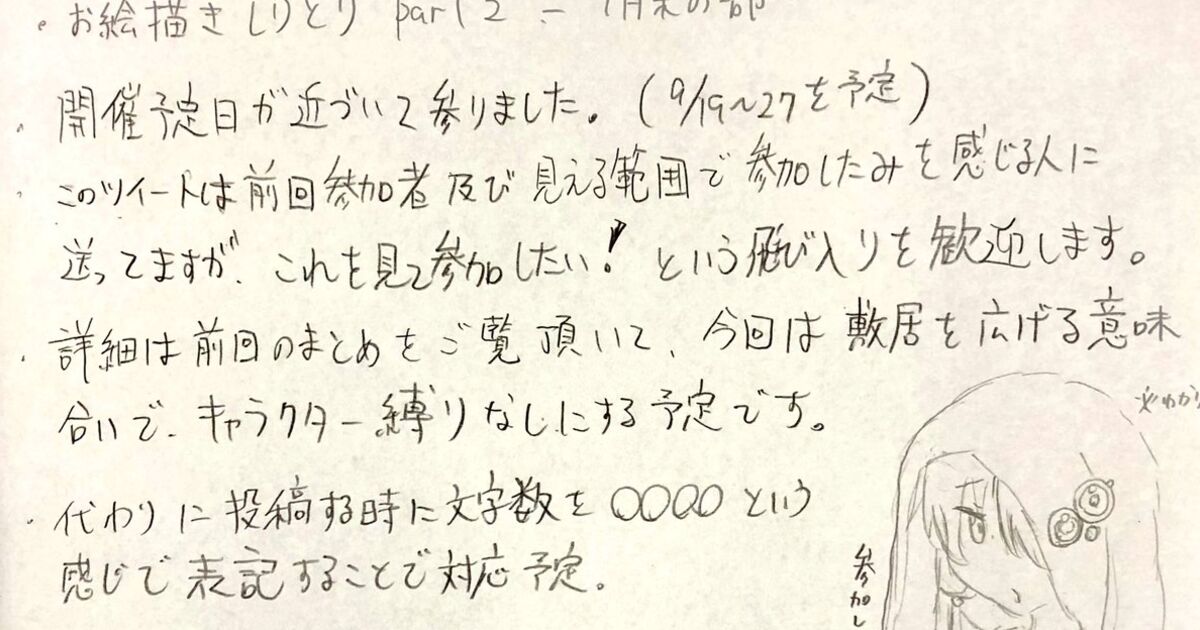 ・お絵描きしりとり part 2 -
・開催予定日が近づいて参りました。(9/19~27を予定)
このツイートは前回参加者及び見える範囲で参加したみを感じる人に
送ってますが、これを見て参加したい!という飛び入りを歓迎します。
・詳細は前回のまとめをご覧頂いて、今回は敷居を広げる意味
合いで、キャラクター縛りなしにする予定です。
・代わりに投稿する時に文字数を〇〇〇〇という
感じで表記することで対応予定。
参加し